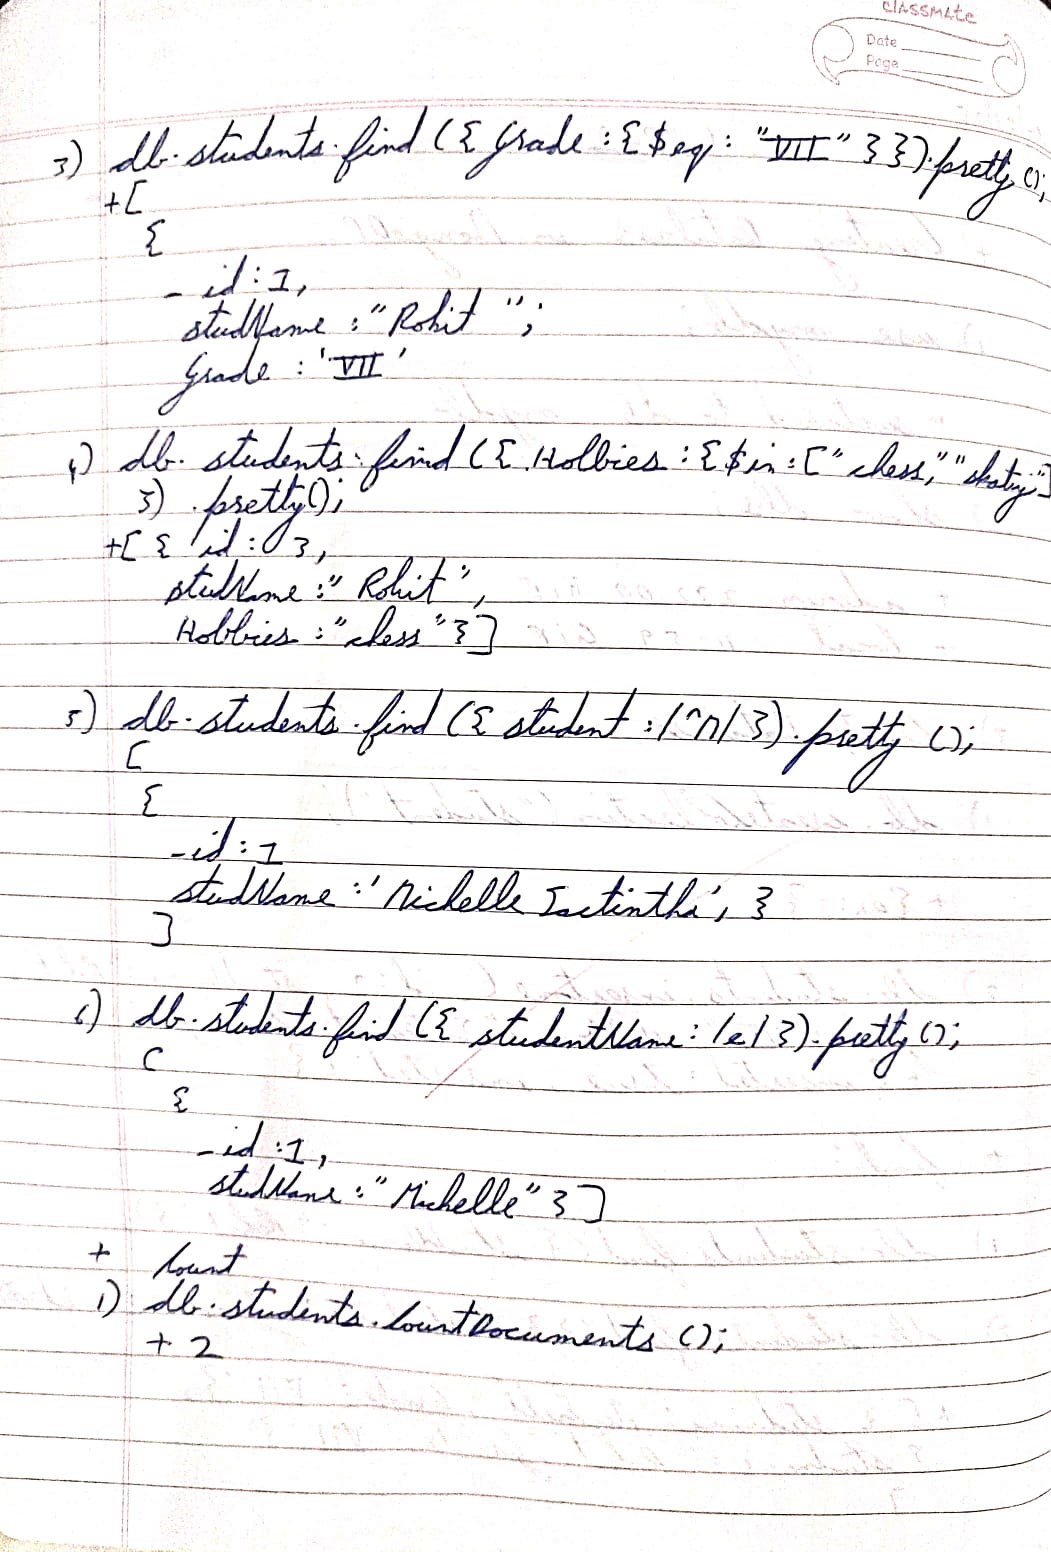 classmate
Date
Page
3) db.students.find ({ Grade : { $eq : "VII" } }).pretty ();
+[
{
_id : 1,
studName : "Rohit" ;
Grade : 'VII'
4) db.students.find ({ Hobbies : { $in : [" chess," "skating"]
}) .pretty();
+[ { id : 3,
studName : " Rohit",
Hobbies : "chess" } ]
5) db.students.find ({ student : /^n/ }).pretty ();
[
{
_id : 1
studName : ' Michelle , }
]
6) db.students.find ({ studentName : /e/ }).pretty ();
[
{
_id : 1,
studName : " Michelle" } ]
+ Count
1) db.students.CountDocuments ();
+ 2